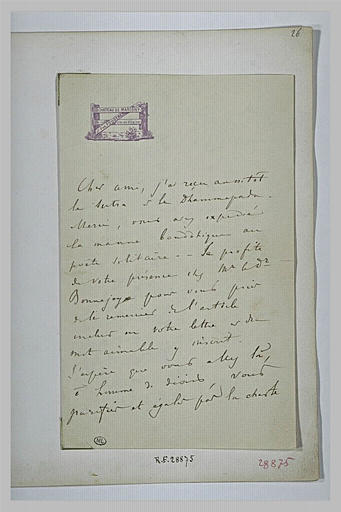 26
CHATEAU DE MARCONY
Cher ami, j'ai reçu aussitôt
le sutra et le Dhammapada.
Merci, vous avez expédié
la manne bouddhique au
poète solitaire. — Je profite
de votre présence chez Mr le Dr
Bonnejoy pour vous prier
de le remercier de l'article
inclus en votre lettre et du
mot aimable y inscrit.
J'espère que vous allez là,
ô homme de désirs vous
purifier et égaler par la chasteté
R.F. 28875
28875